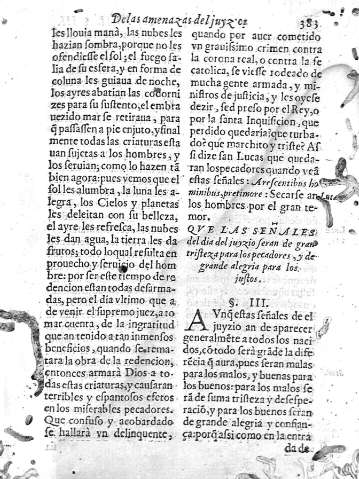 De las amenazas del juyzio.
383
les llouia manà, las nubes les
hazian sombra, porque no les
ofendiesse el sol; el fuego sa-
lia de su esfera, y en forma de
coluna les guiaua de noche,
los ayres abatian las codorni
zes para su sustento, el embra
uezido mar se retiraua, para
q̃ passassen a pie enjuto, y final
mente todas criaturas esta
uan sujetas a los hombres, y
los seruian; como lo hazen tã
bien agora; pues vemos que el
sol les alumbra, la luna les a-
legra, los Cielos y planetas
les deleitan con su belleza,
el ayre les refresca, las nubes
les dan agua, la tierra les da
frutos; todo loqual resulta en
prouecho y seruicio del hom
bre: por ser este tiempo de re
dencion estan todas desarma-
das, pero el dia vltimo que a
de venir el supremo juez, a to
mar cuenta, de la ingratitud
que an tenido a tan inmensos
beneficios, quando se rema-
tara la obra de la redencion,
entonces armarà Dios a to-
das estas criaturas, y causaran
terribles y espantosos efetos
en los miserables pecadores.
Que confuso y acobardado
se hallarà vn delinquente,
quando por auer cometido
vn grauissimo crimen contra
la corona real, o contra la fe
catolica, se viesse rodeado de
mucha gente armada, y mi-
nistros de justicia, y les oyese
dezir, sed preso por el Rey, o
por la santa Inquisicion, que
perdido quedaria? que turba-
do? que marchito y triste? As
si dize san Lucas que queda-
ran los pecadores quando vea
estas señales: Arescentibus ho
minibus, præ timore: Secarse an
los hombres por el gran te-
mor.
Luc
QVE LAS SEÑALES
del dia del juyzio seran de gran
tristeza para los pecadores, y de
grande alegria para los
justos.
§. III.
AVnq̃ estas señales de el
juyzio an de aparecer
generalmẽte a todos los naci
dos, cõ todo serà grãde la dife
rẽcia q̃ aura, pues seran malas
para los malos, y buenas para
los buenos: para los malos se
rã de suma tristeza y desespe-
raciõ, y para los buenos seran
de grande alegria y confian-
ça: porq̃ assi como en la entra
da de